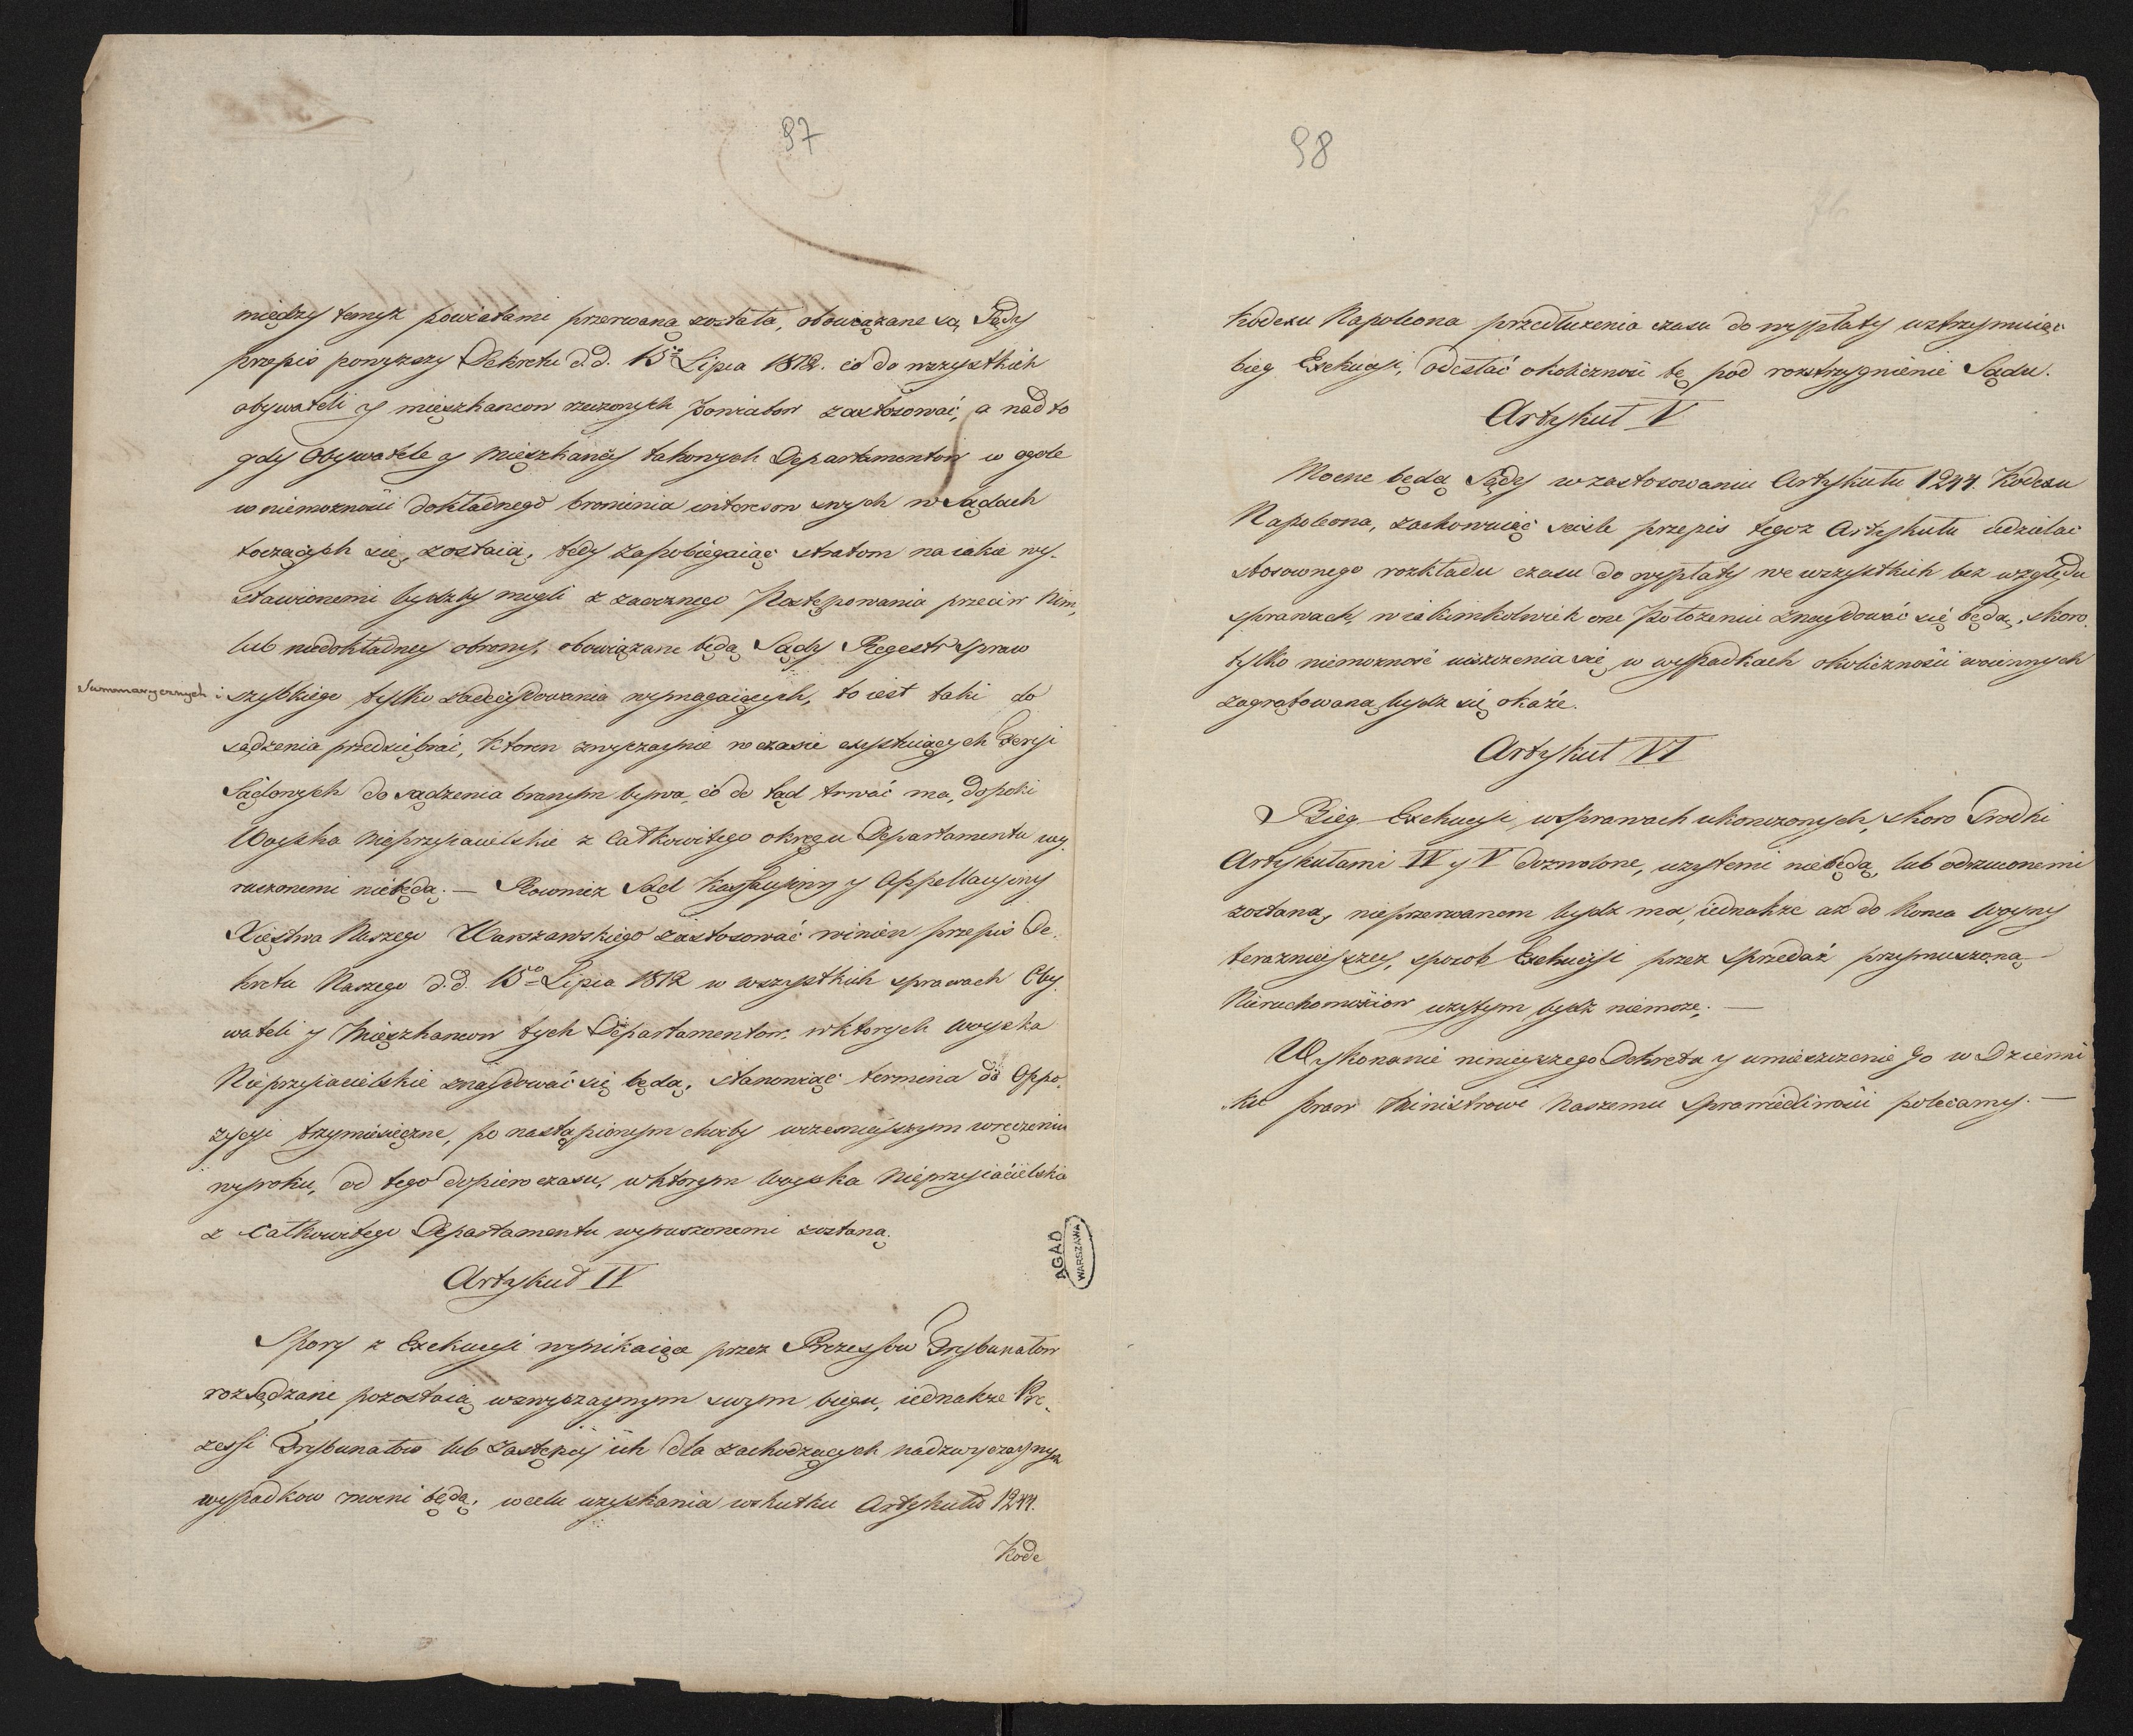 97
między temyż powiatami przerwaną została, obowiązane są Sądy
przepis ponyższy Dekretu d.d. 15º Lipca 1812. co do wszystkich
obywateli y mieszkancow rzeczonych Powiatow zastosować, a nadto
gdy Obywatele y Mieszkańcy takowych Departamentow w ogole
w niemożności dokładnego bronienia interesow swych w Sądach
toczących się, zostaią, tedy zapobiegaiąc stratom na iakie wy-
stawionemi bydźby mogli z zaocznego Postępowania przeciw Nim,
lub niedokładney obrony, obowiązane będą Sądy Regestr Spraw
Summarycznych i szybkiego tylko zadecydowania wymagaiących, to iest taki do
sądzenia przedsiębrać, ktoren zwyczaynie w czasie exystuiących Feryi
Sądowych do sądzenia branym bywa, co do tąd trwać ma, dopoki
Woyska Nieprzyiacielskie z Całkowitego okręgu Departamentu wy-
ruszonemi niebędą. — Rownież Sąd Kassacyiny y Appellacyiny
Xięstwa Naszego Warszawskiego zastosować winien przepis De-
kretu Naszego d.d. 15º Lipca 1812 w wszystkich sprawach Oby-
wateli y Mieszkancow tych Departamentow, w ktorych woyska
Nieprzyiacielskie znaydować się będą, stanowiąc termina do Oppo-
zycyi trzymiesięczne, po nastąpionym choćby wcześnieyszym wręczeniu
wyroku, od tego dopiero czasu, w ktorym woyska Nieprzyiacielskie
z Całkowitego Departamentu wyruszonemi zostaną.
Artykuł IV
Spory z Exekucyi wynikaiące przez Prezessow Trybunałow
rozsądzane pozostaią w zwyczaynym swym biegu, iednakże Pre-
zessi Trybunałow lub Zastępcy ich dla zachodzących nadzwyczaynych
wypadkow mocni będą, w celu uzyskania w skutku Artykułu 1244.
Kode
AGAD
WARSZAWA
98
Kodexu Napoleona przedłużenia czasu do wypłaty wstrzymuiąc
bieg Exekucyi, odesłać okoliczność tę pod rozstrzygnienie Sądu.
Artykuł V
Mocne będą Sądy w zastosowaniu Artykułu 1244. Kodexu
Napoleona, zachowuiąc ściśle przepis tegoż Artykułu udzielac
stosownego rozkładu czasu do wypłaty we wszystkich bez względu
sprawach, w iakimkolwiek one Położeniu znaydować się będą, skoro
tylko niemożność uiszczenia się w wypadkach okoliczności woiennych
zagrątowana bydź się okaże.
Artykuł VI
Bieg Exekucyi w Sprawach ukończonych, skoro Srodki
Artykułami IV y V dozwolone, użytemi niebędą, lub odrzuconemi
zostaną, nieprzerwanem bydź ma, iednakże aż do Końca Woyny
teraznieyszey, sposob Exekucyi przez Sprzedaż przymuszoną
Nieruchomościow użytym bydź niemoże. —
Wykonanie ninieyszego Dekretu y umieszczenie Go w Dzienni-
ku praw Ministrowi Naszemu Sprawiedliwości polecamy. —